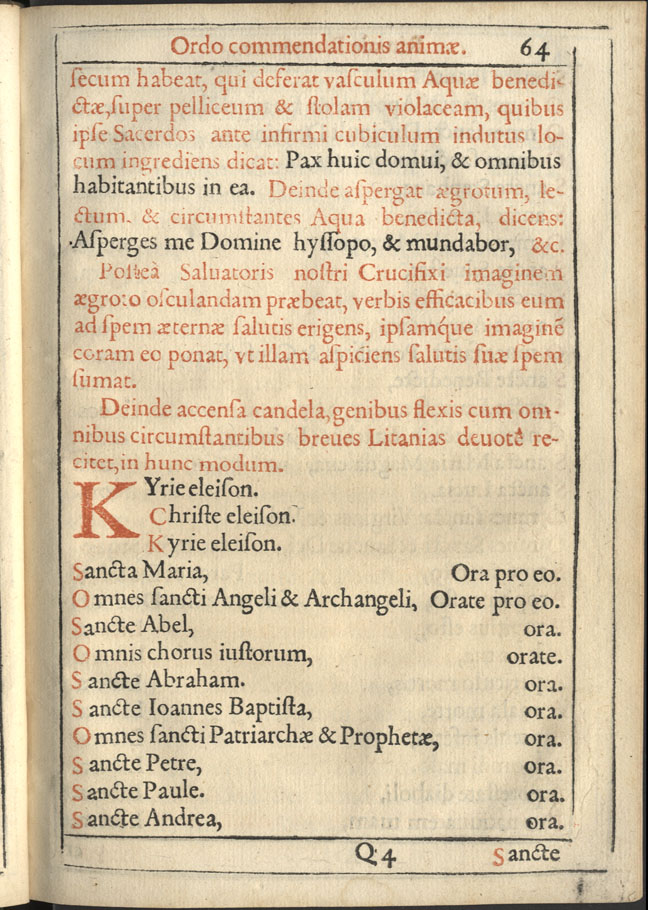 Ordo commendationis animæ. 64
ſecum habeat, qui deferat vaſculum Aquæ benedi-
ctæ, ſuper pelliceum & ſtolam violaceam, quibus
ipſe Sacerdos ante infirmi cubiculum indutus lo-
cum ingrediens dicat: Pax huic domui, & omnibus
habitantibus in ea. Deinde aſpergat ægrotum, le-
ctum. & circumſtantes Aqua benedicta, dicens:
Aſperges me Domine hyſſopo, & mundabor, &c.
Poſteà Saluatoris noſtri Crucifixi imaginem
ægroto oſculandam præbeat, verbis efficacibus eum
ad ſpem æternæ ſalutis erigens, ipſamq́ue imaginẽ
coram eo ponat, vt illam aſpiciens ſalutis ſuæ ſpem
ſumat.
Deinde accenſa candela, genibus flexis cum om-
nibus circumſtantibus breues Litanias deuotè re-
citet, in hunc modum.
KYrie eleiſon.
Chriſte eleiſon.
Kyrie eleiſon.
Sancta Maria, Ora pro eo.
Omnes ſancti Angeli & Archangeli, Orate pro eo.
Sancte Abel, ora.
Omnis chorus iuſtorum, orate.
Sancte Abraham. ora.
Sancte Ioannes Baptiſta, ora.
Omnes ſancti Patriarchæ & Prophetæ, ora.
Sancte Petre, ora.
Sancte Paule. ora.
Sancte Andrea, ora.
Q 4 Sancte